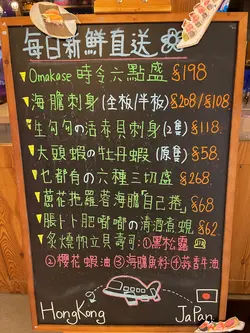 每日新鮮直送
Omakase 時令六點盛 $198
海膽刺身 (全板/半板) $208/$108
生勾勾の活赤貝刺身 (2隻) $118.
大頭蝦の牡丹蝦 (原隻) $58.
乜都有の六種三切盛 $268
蔥花拖羅蓉海膽「自己捲」 $68
脹卜卜肥嘟嘟の清酒煮蜆 $62
炙燒帆立貝壽司:①黑松露
②櫻花蝦油 ③海膽魚籽 ④蒜香牛油
HongKong
JaPan